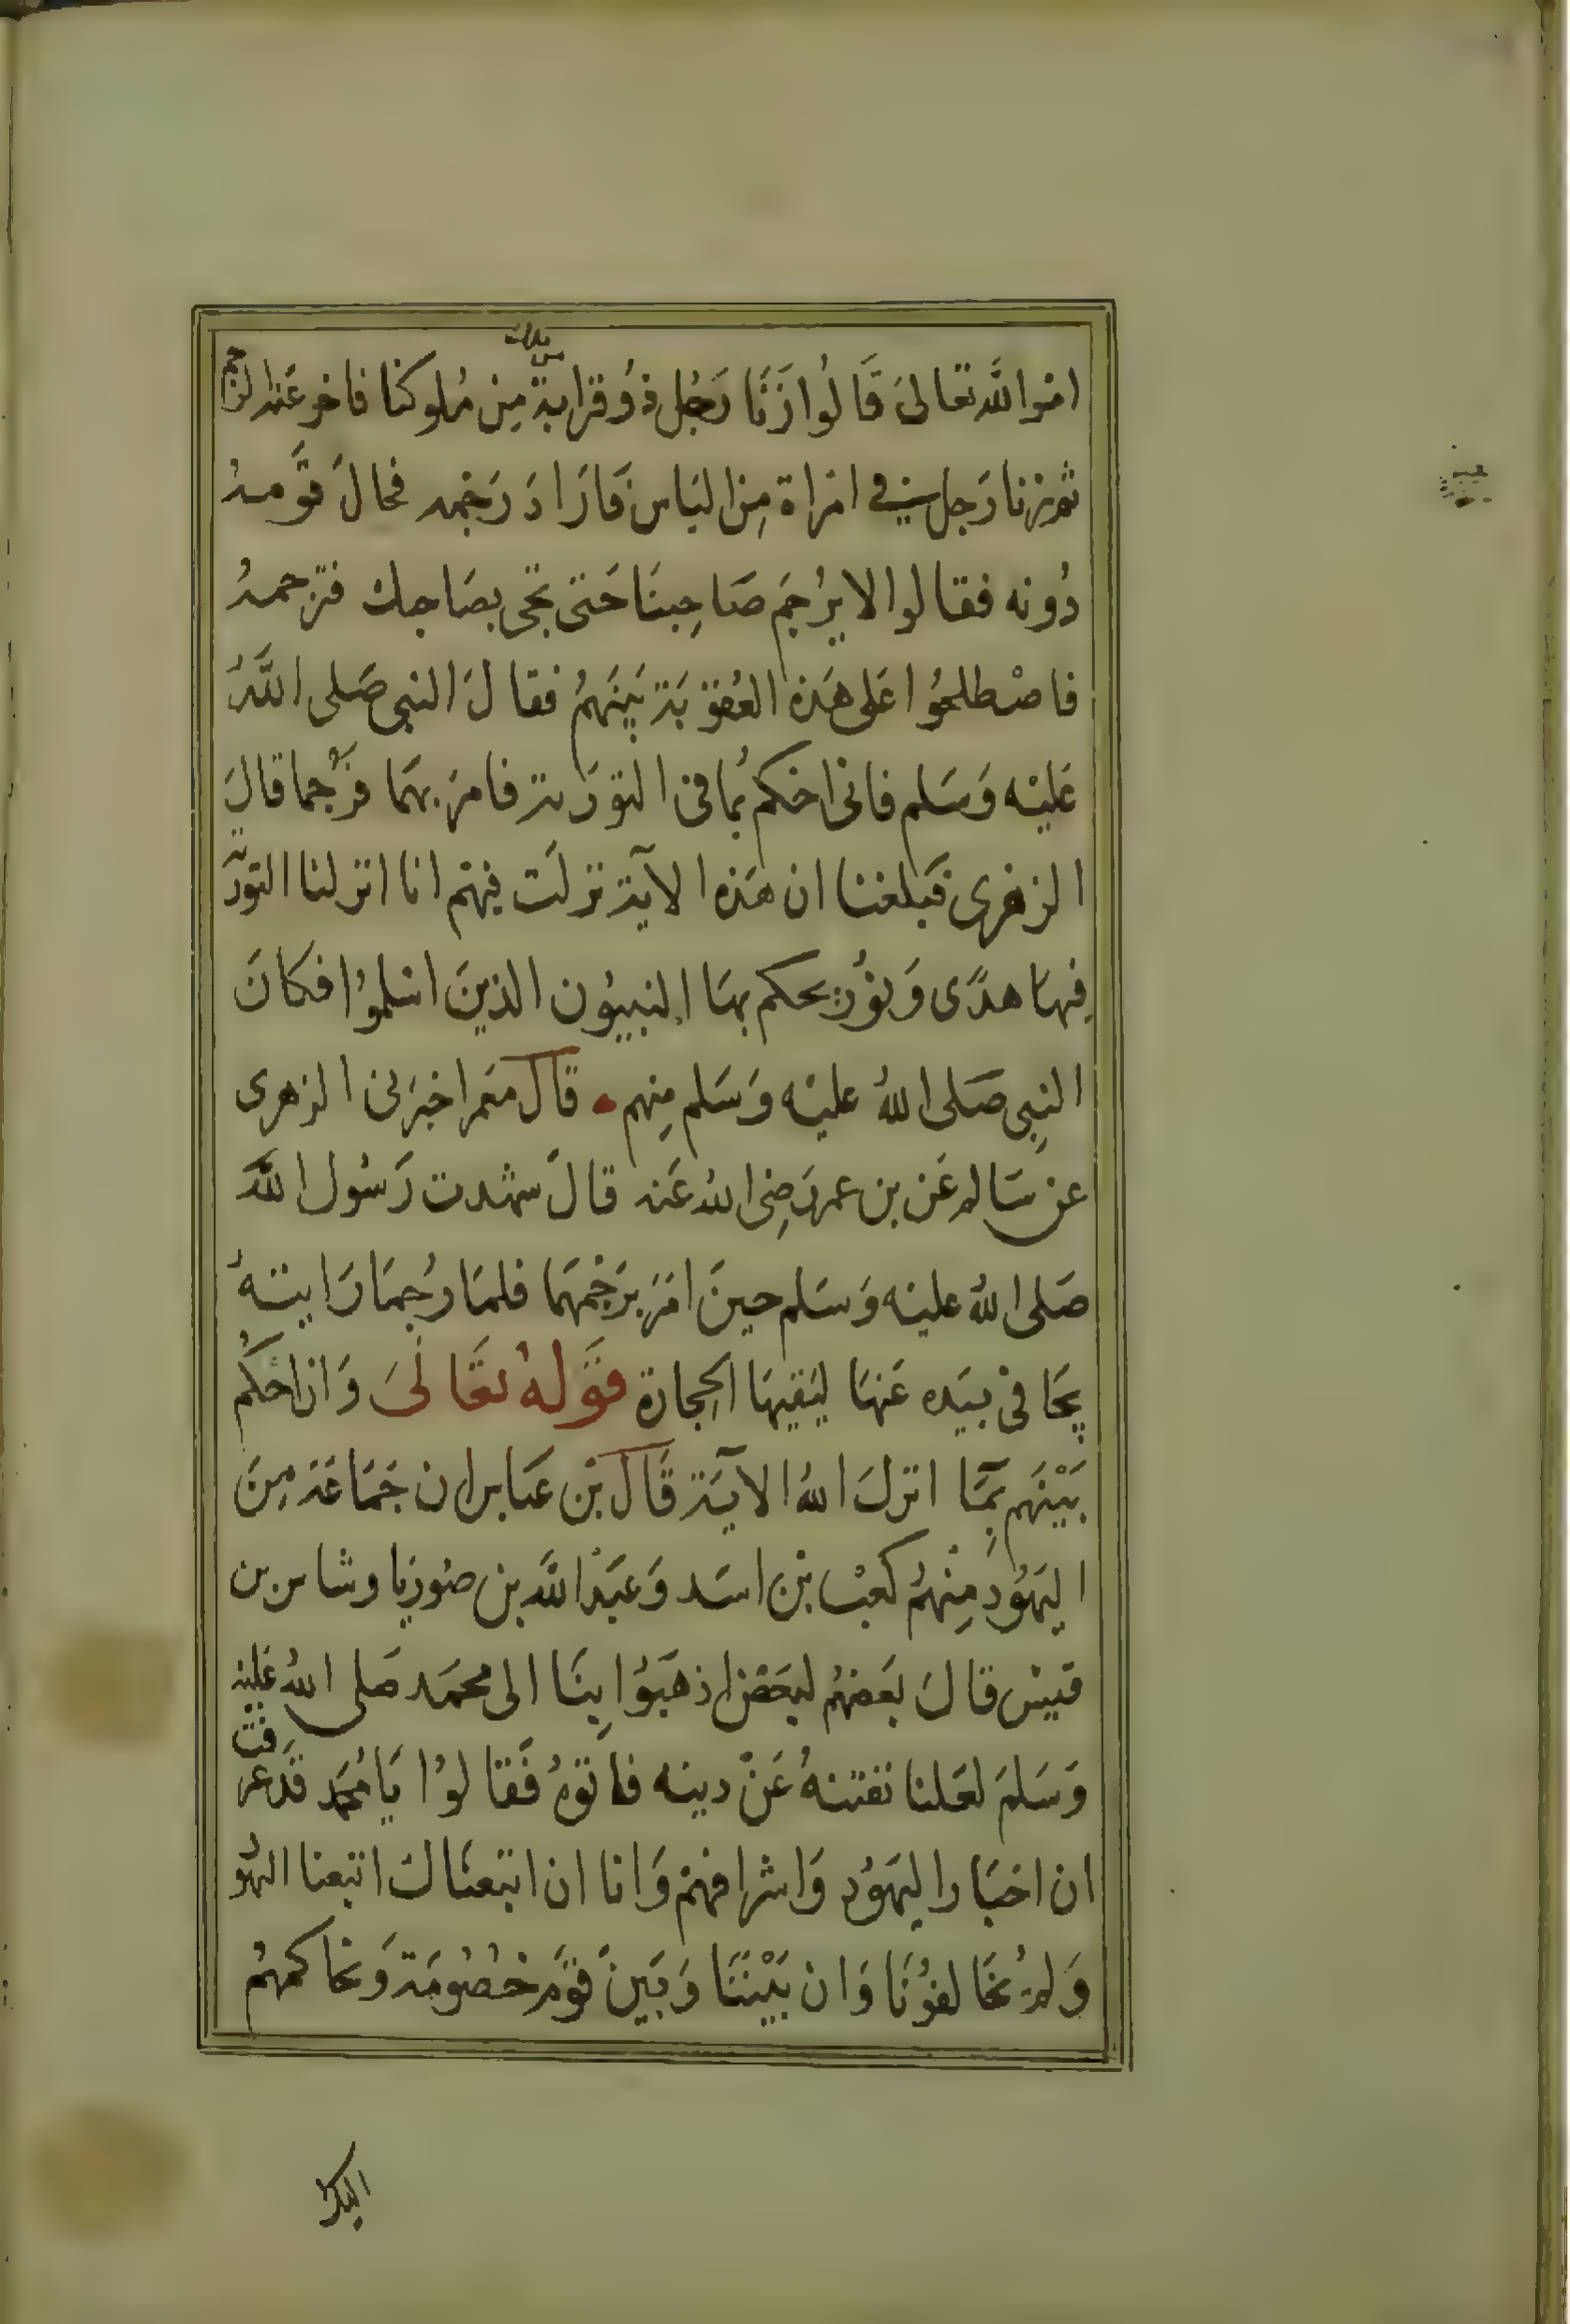 امر الله تعالى قالوا زنا رجل ذو قرابة من ملك من ملوكنا فاخر عنه الرجم
ثم زنا رجل في امراة من الناس فاراد رجمه فحال قومه
دونه فقالوا لا يرجم صاحبنا حتى تجى بصاحبك فترجمه
فاصطلحوا على هذه العقوبة بينهم فقال النبي صلى الله
عليه وسلم فانى احكم بما في التورية فامر بهما فرجما قال
الزهرى فبلغنا ان هذه الآية نزلت فيهم انا انزلنا التورية
فيها هدى ونور يحكم بها النبيون الذين اسلموا فكان
النبي صلى الله عليه وسلم منهم قال معمر اخبرنى الزهرى
عن سالم عن بن عمر رضى الله عنه قال شهدت رسول الله
صلى الله عليه وسلم حين امر برجمهما فلما رجما رايته
يجافى بيده عنها ليقيها الحجارة قوله تعالى وان احكم
بينهم بما انزل الله الآية قال بن عباس ان جماعة من
اليهود منهم كعب بن اسد وعبد الله بن صوريا وشاس بن
قيس قال بعضهم لبعض اذهبوا بنا الى محمد صلى الله عليه
وسلم لعلنا نفتنه عن دينه فاتوه فقالوا يا محمد قد عرفت
ان احبار اليهود واشرافهم وانا ان اتبعناك اتبعنا اليهود
ولم يخالفونا وان بيننا وبين قوم خصومة ونحاكمهم
اليك